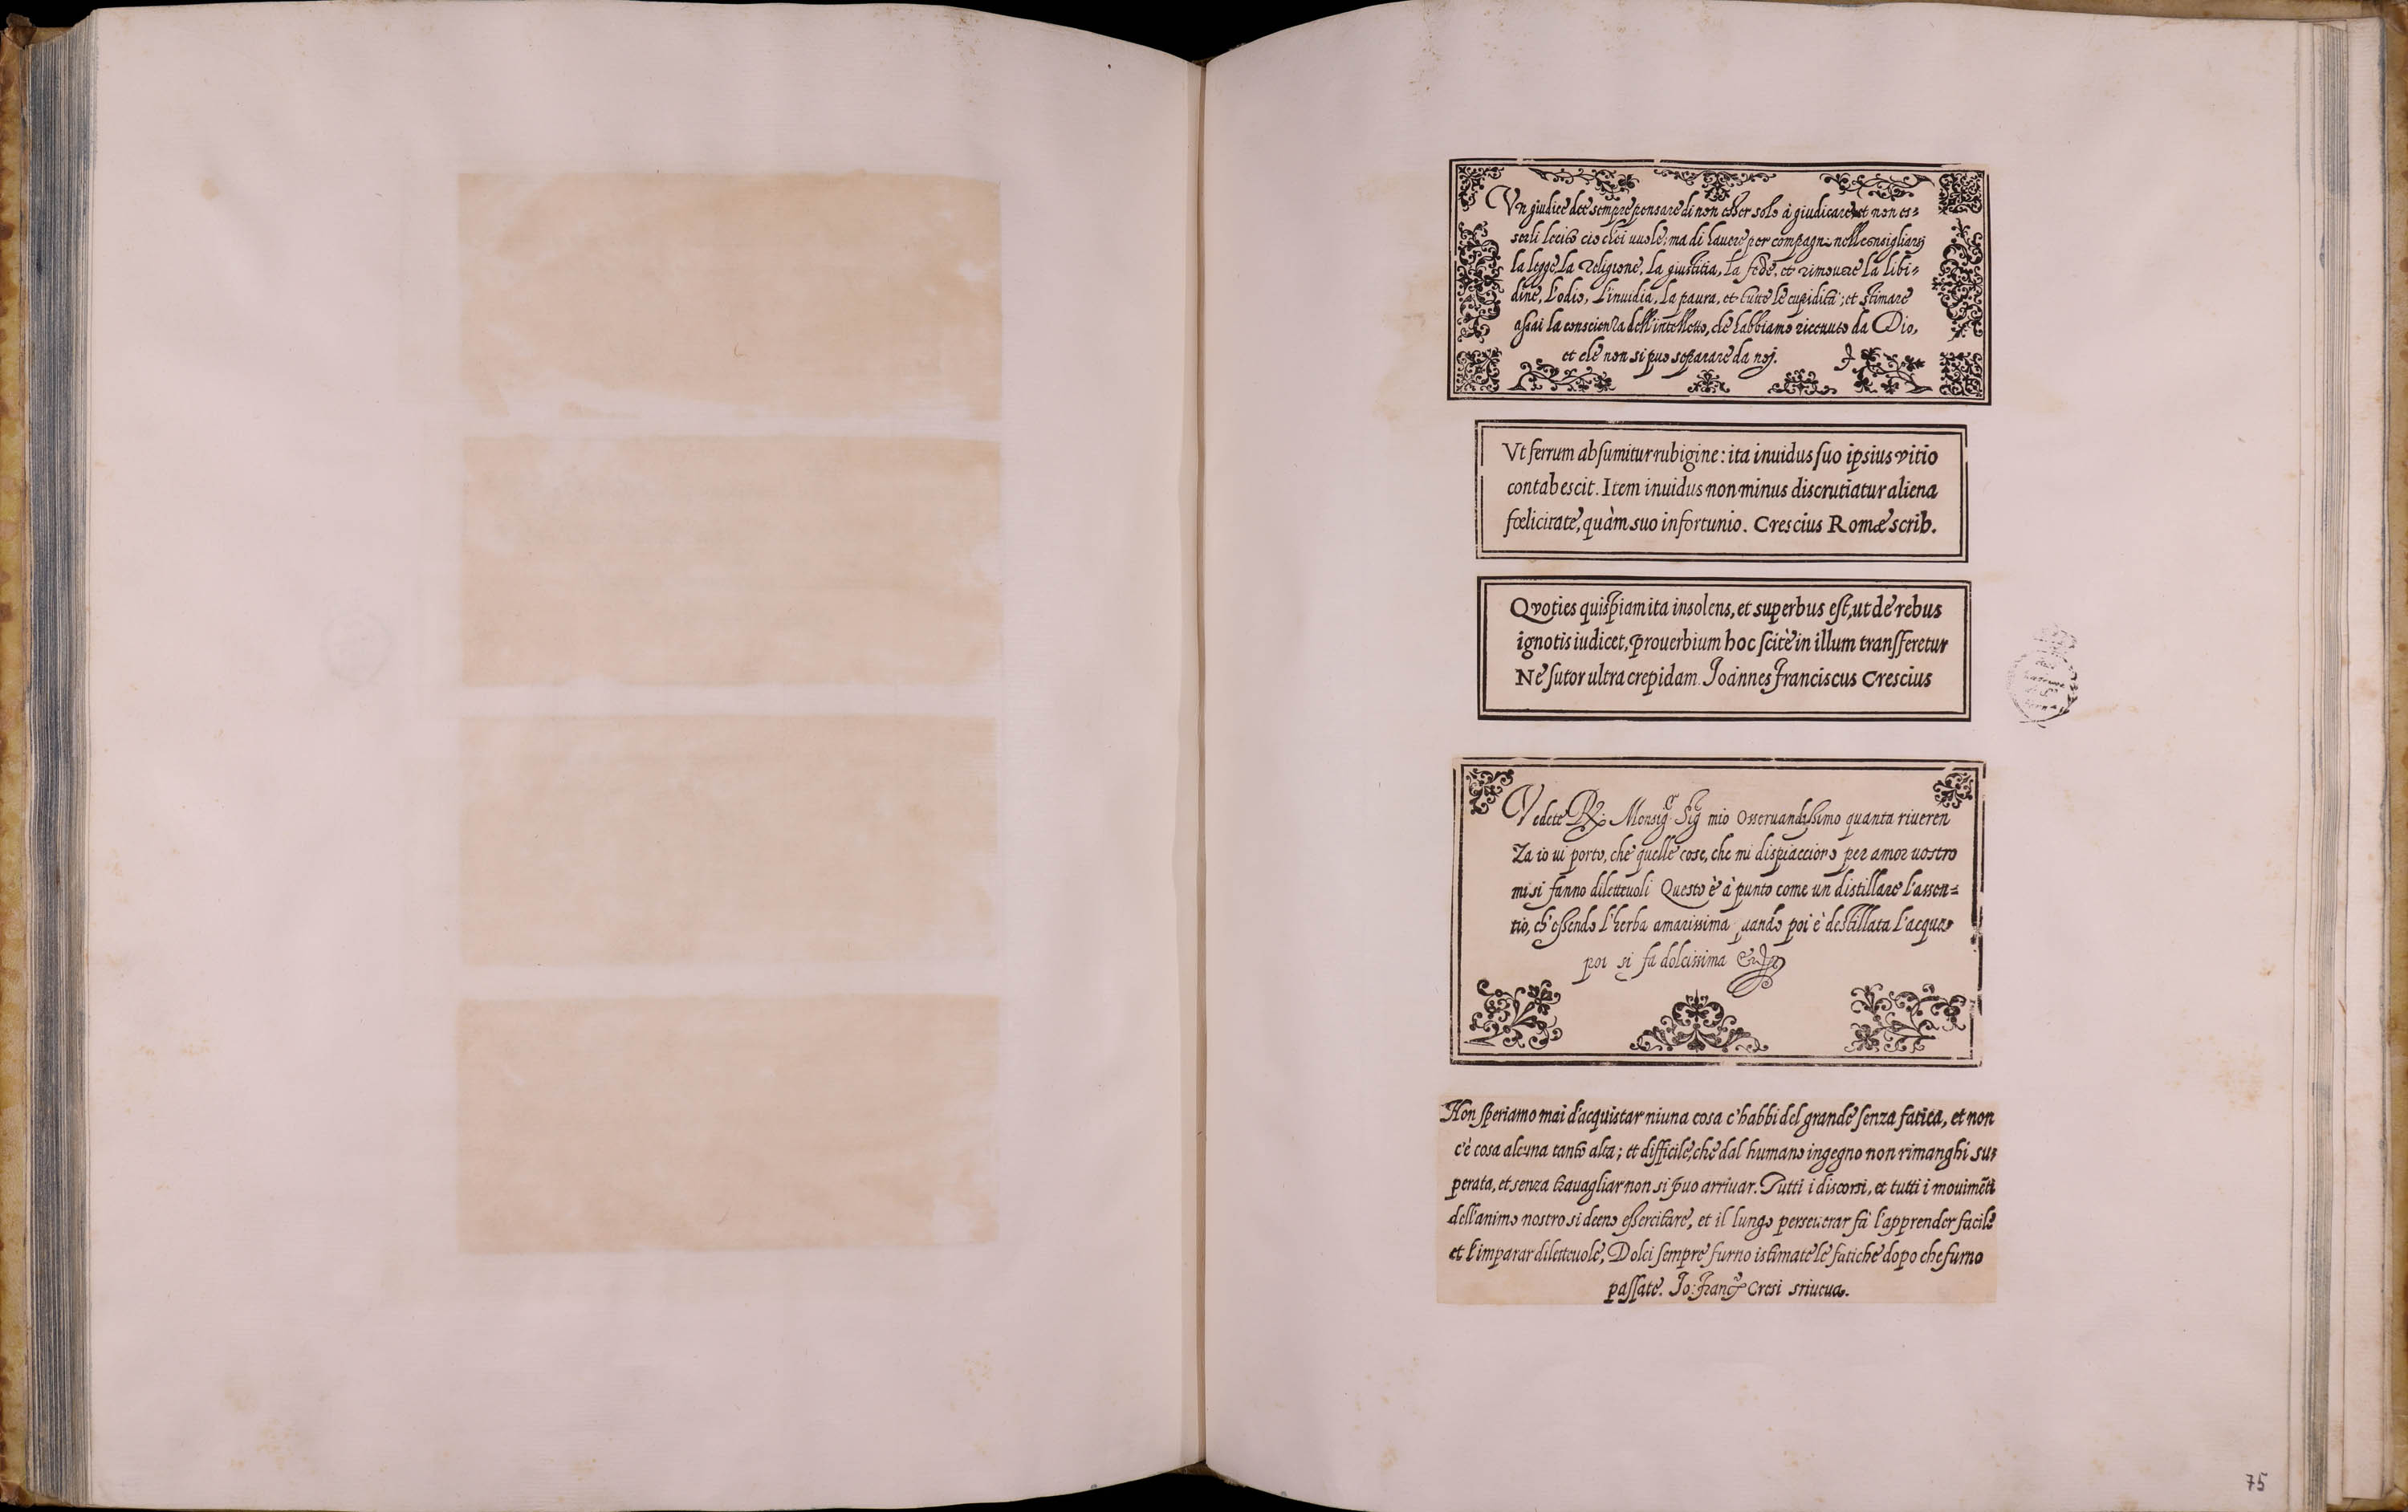 Vn giudice dee sempre pensare di non esser solo à giudicare, et non es=
serli lecito cio ch'ei uuole; ma di hauere per compagni nell consigliarsi
la legge, la religione, la giustitia, la fede, et rimouere la libi=
dine, l'odio, l'inuidia, la paura, et tutte le cupidità; et stimare
assai la conscienza dell'intelletto, che habbiamo riceuuto da Dio,
et che non si puo separare da noj.
Vt ferrum absumitur rubigine: ita inuidus suo ipsius vitio
contabescit. Item inuidus non minus discrutiatur aliena
fœlicitate, quàm suo infortunio. Crescius Romæ scrib.
Qvoties quispiam ita insolens, et superbus est, ut de rebus
ignotis iudicet, prouerbium hoc scitè in illum transferetur
Ne sutor ultra crepidam. Joannes Franciscus Crescius
Vedete Monsig.r Sig. mio Osseruandissimo quanta riueren
za io ui porto, che quelle cose, che mi dispiacciono per amor uostro
mi si fanno diletteuoli Questo è à punto come un distillare l'assen=
tio, ch'essendo l'herba amarissima quando poi è destillata l'acqua
poi si fa dolcissima
Non speriamo mai d'acquistar niuna cosa c'habbi del grande senza fatica, et non
c'è cosa alcuna tanto alta; et difficile, che dal humano ingegno non rimanghi su=
perata, et senza trauagliar non si puo arriuar. Tutti i discorsi, et tutti i mouimẽti
dell'animo nostro si deeno essercitare, et il lungo perseuerar fà l'apprender facile
et l'imparar diletteuole, Dolci sempre furno istimate le fatiche dopo che furno
passate. Jo: Franc.o Cresi sriueua.
75